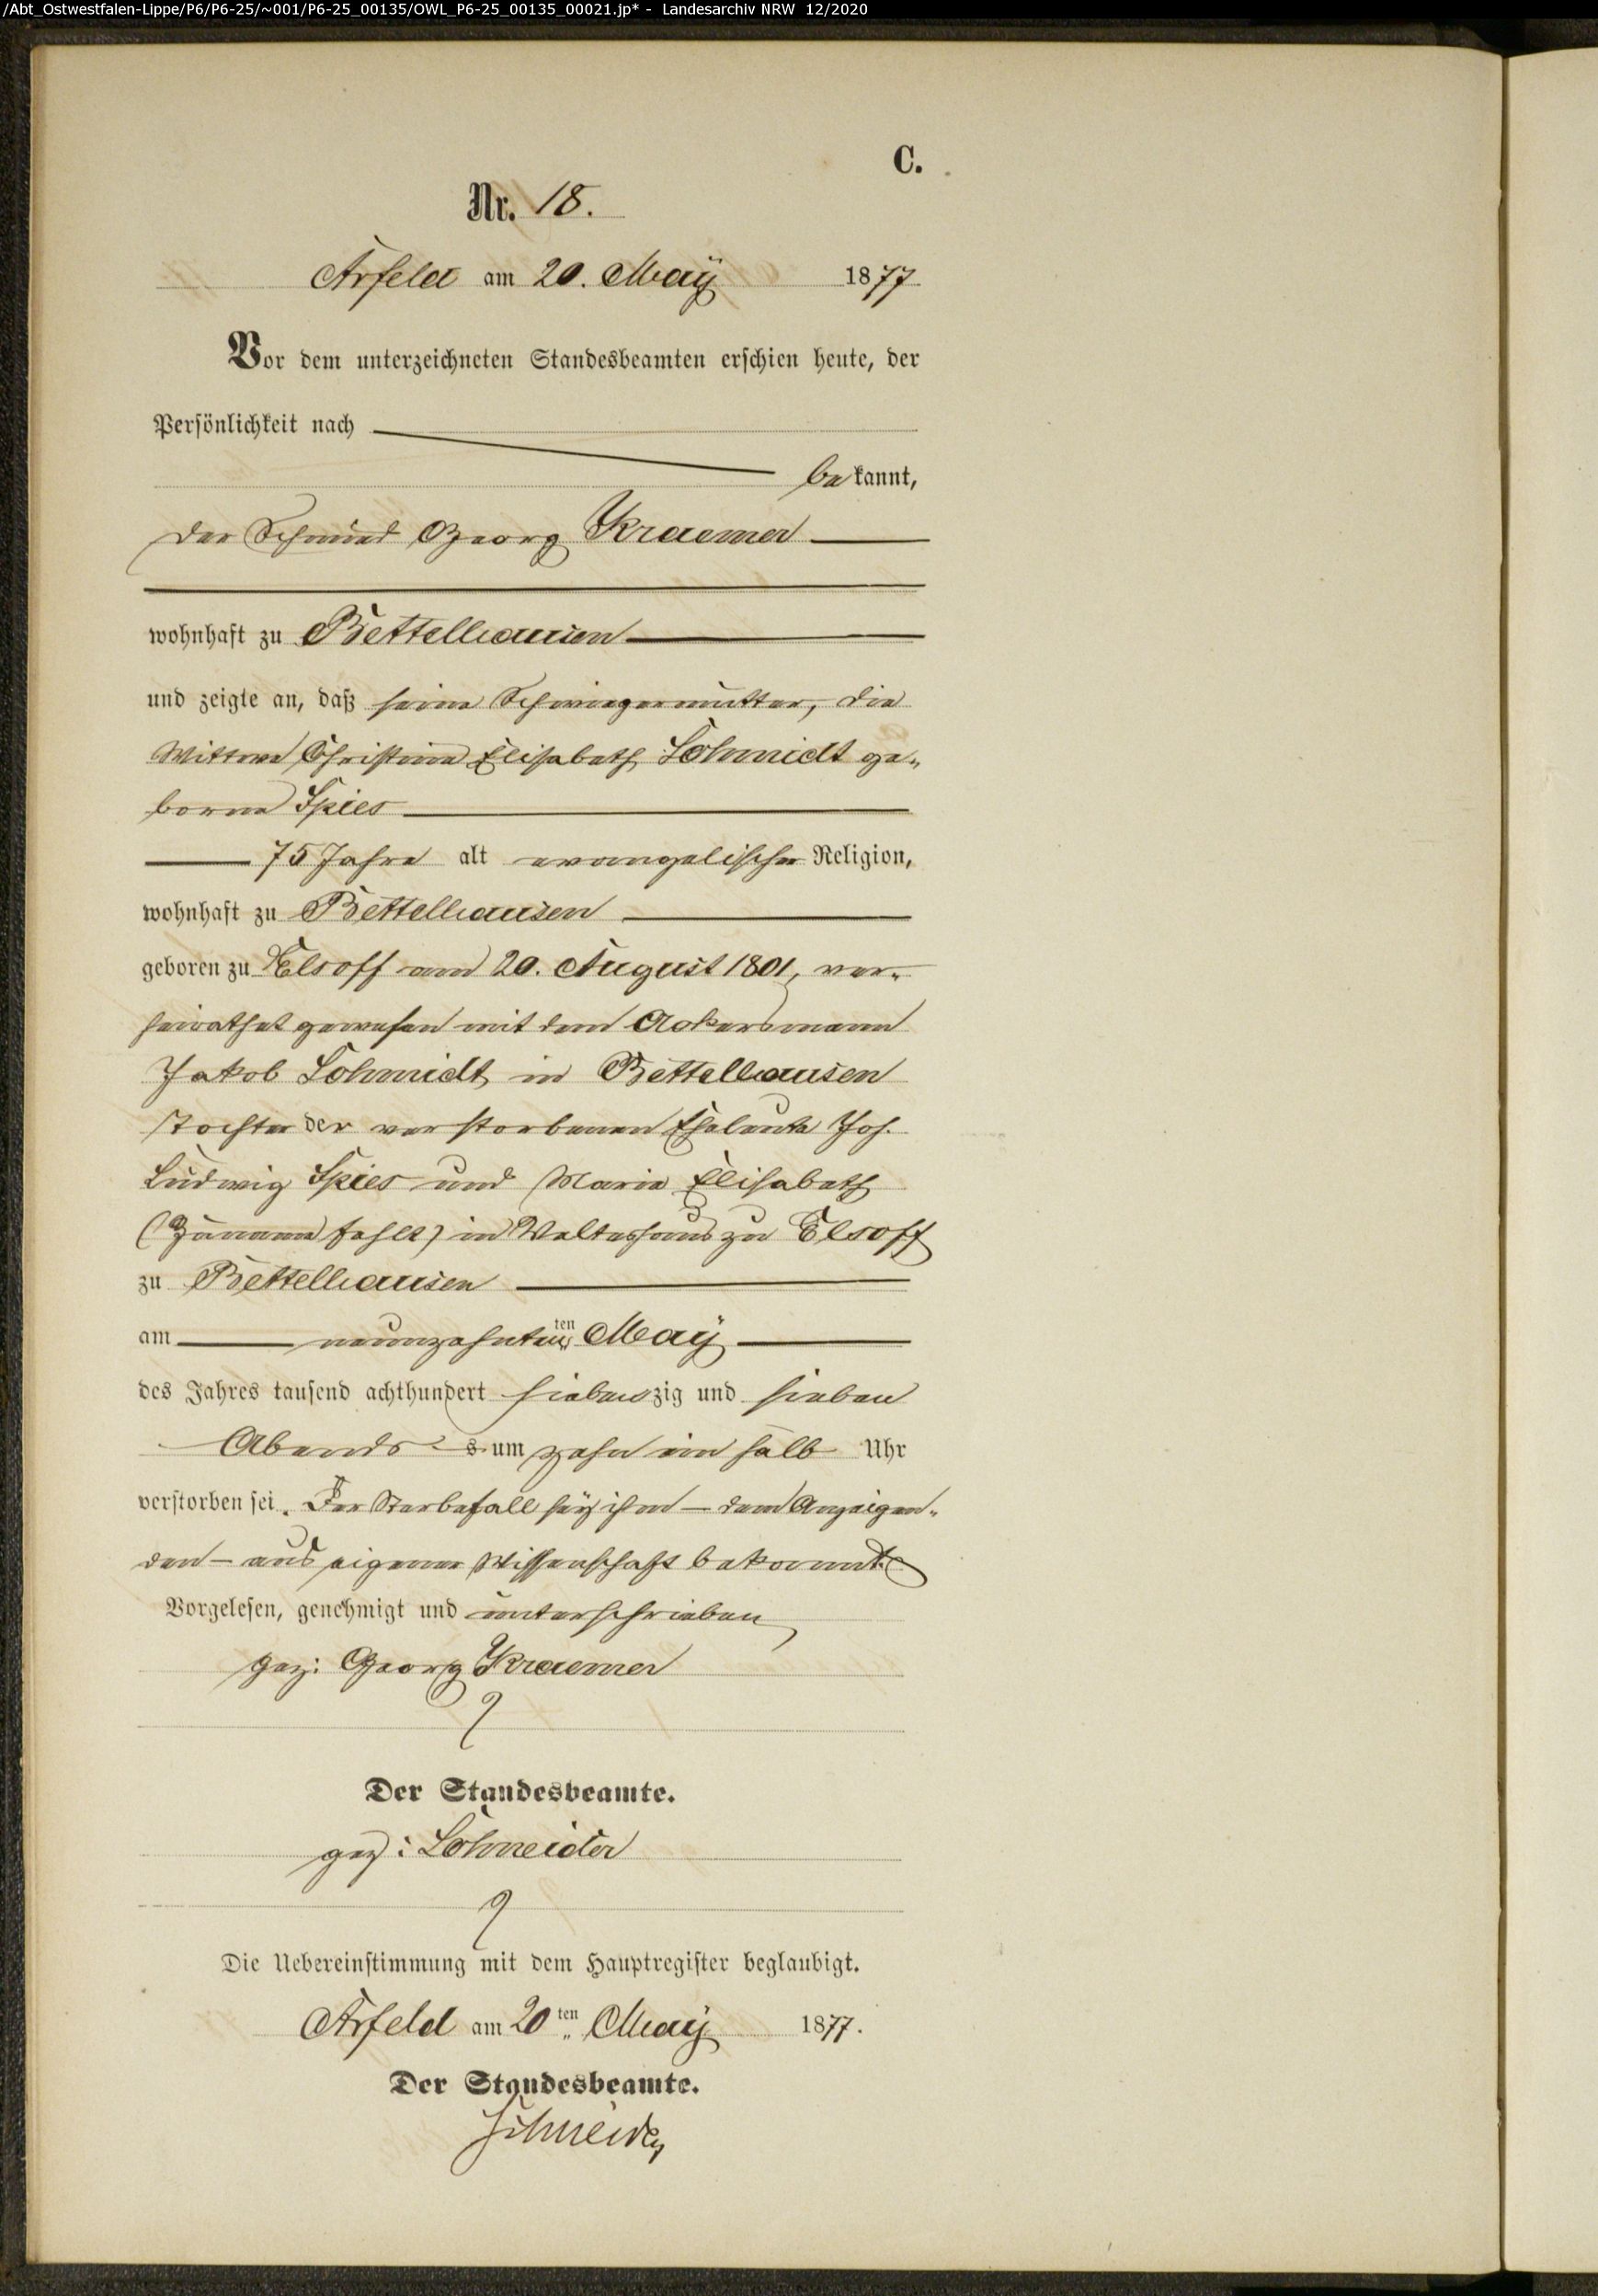 /Abt_Ostwestfalen-Lippe/P6/P6-25/~001/P6-25_00135/OWL_P6-25_00135_00021.jp* - Landesarchiv NRW 12/2020
C.
Nr. 18.
Arfeld am 20. Maÿ 1877
Vor dem unterzeichneten Standesbeamten erschien heute, der
Persönlichkeit nach
bekannt,
der Schmied Georg Kraemer
wohnhaft zu Bettelhausen
und zeigte an, daß seine Schwiegermutter, die
Wittwe Christine Elisabeth Schmidt ge-
borne Spies
75 Jahre alt evangelischer Religion,
wohnhaft zu Bettelhausen
geboren zu Elsoff am 20. August 1801, ver-
heirathet gewesen mit dem Ackersmann
Jakob Schmidt in Bettelhausen
Tochter der verstorbenen Eheleute Joh.
Ludwig Spies und Maria Elisabeth
(Zuname fehlt) in Welteshaus zu Elsoff
zu Bettelhausen
am neunzehnten ten Maÿ
des Jahres tausend achthundert siebenzig und sieben
Abends s um zehn ein halb Uhr
verstorben sei. Der Sterbefall seÿ ihm – dem Anzeigen-
den – aus eigener Wissenschaft bekannt.
Vorgelesen, genehmigt und unterschrieben
gez: Georg Kraemer
Der Standesbeamte.
gez: Schneider
Die Uebereinstimmung mit dem Hauptregister beglaubigt.
Arfeld am 20ten Maÿ 1877.
Der Standesbeamte.
Schneider